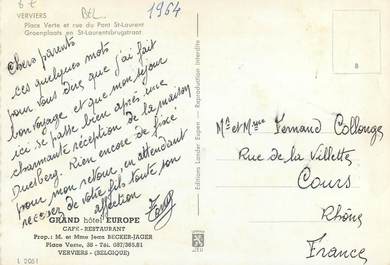 67
BEL
1964
VERVIERS
Place Verte et rue du Pont St-Laurent
Groenplaats en St-Laurentsbrugstraat
Chers parents
ces quelques mots
pour vous dire que j'ai fait
bon voyage et que mon séjour
ici se passe bien après une
charmante réception de la maison
Rien encore de fixé
pour mon retour, en attendant
recevez de votre fils toute son
affection
GRAND hôtel EUROPE
CAFE - RESTAURANT
Prop.: M. et Mme Jean BECKER-JAGER
Place Verte, 38 - Tél. 087/365.81
VERVIERS - (BELGIQUE)
Editions Lander Eupen — Reproduction interdite
8
Mr et Mme Fernand Collonge
Rue de la Villette
Cours
Rhône
France